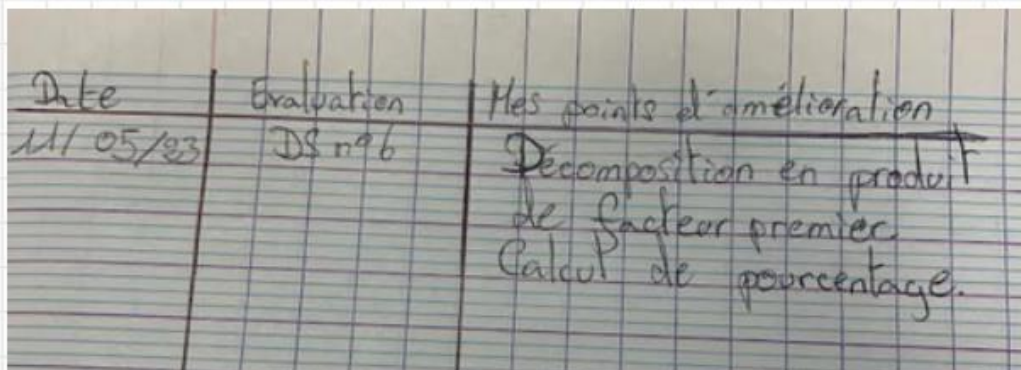 Date Evaluation Mes points d'amélioration
11/05/23 DS n°6 Décomposition en produit
de facteur premier.
Calcul de pourcentage.